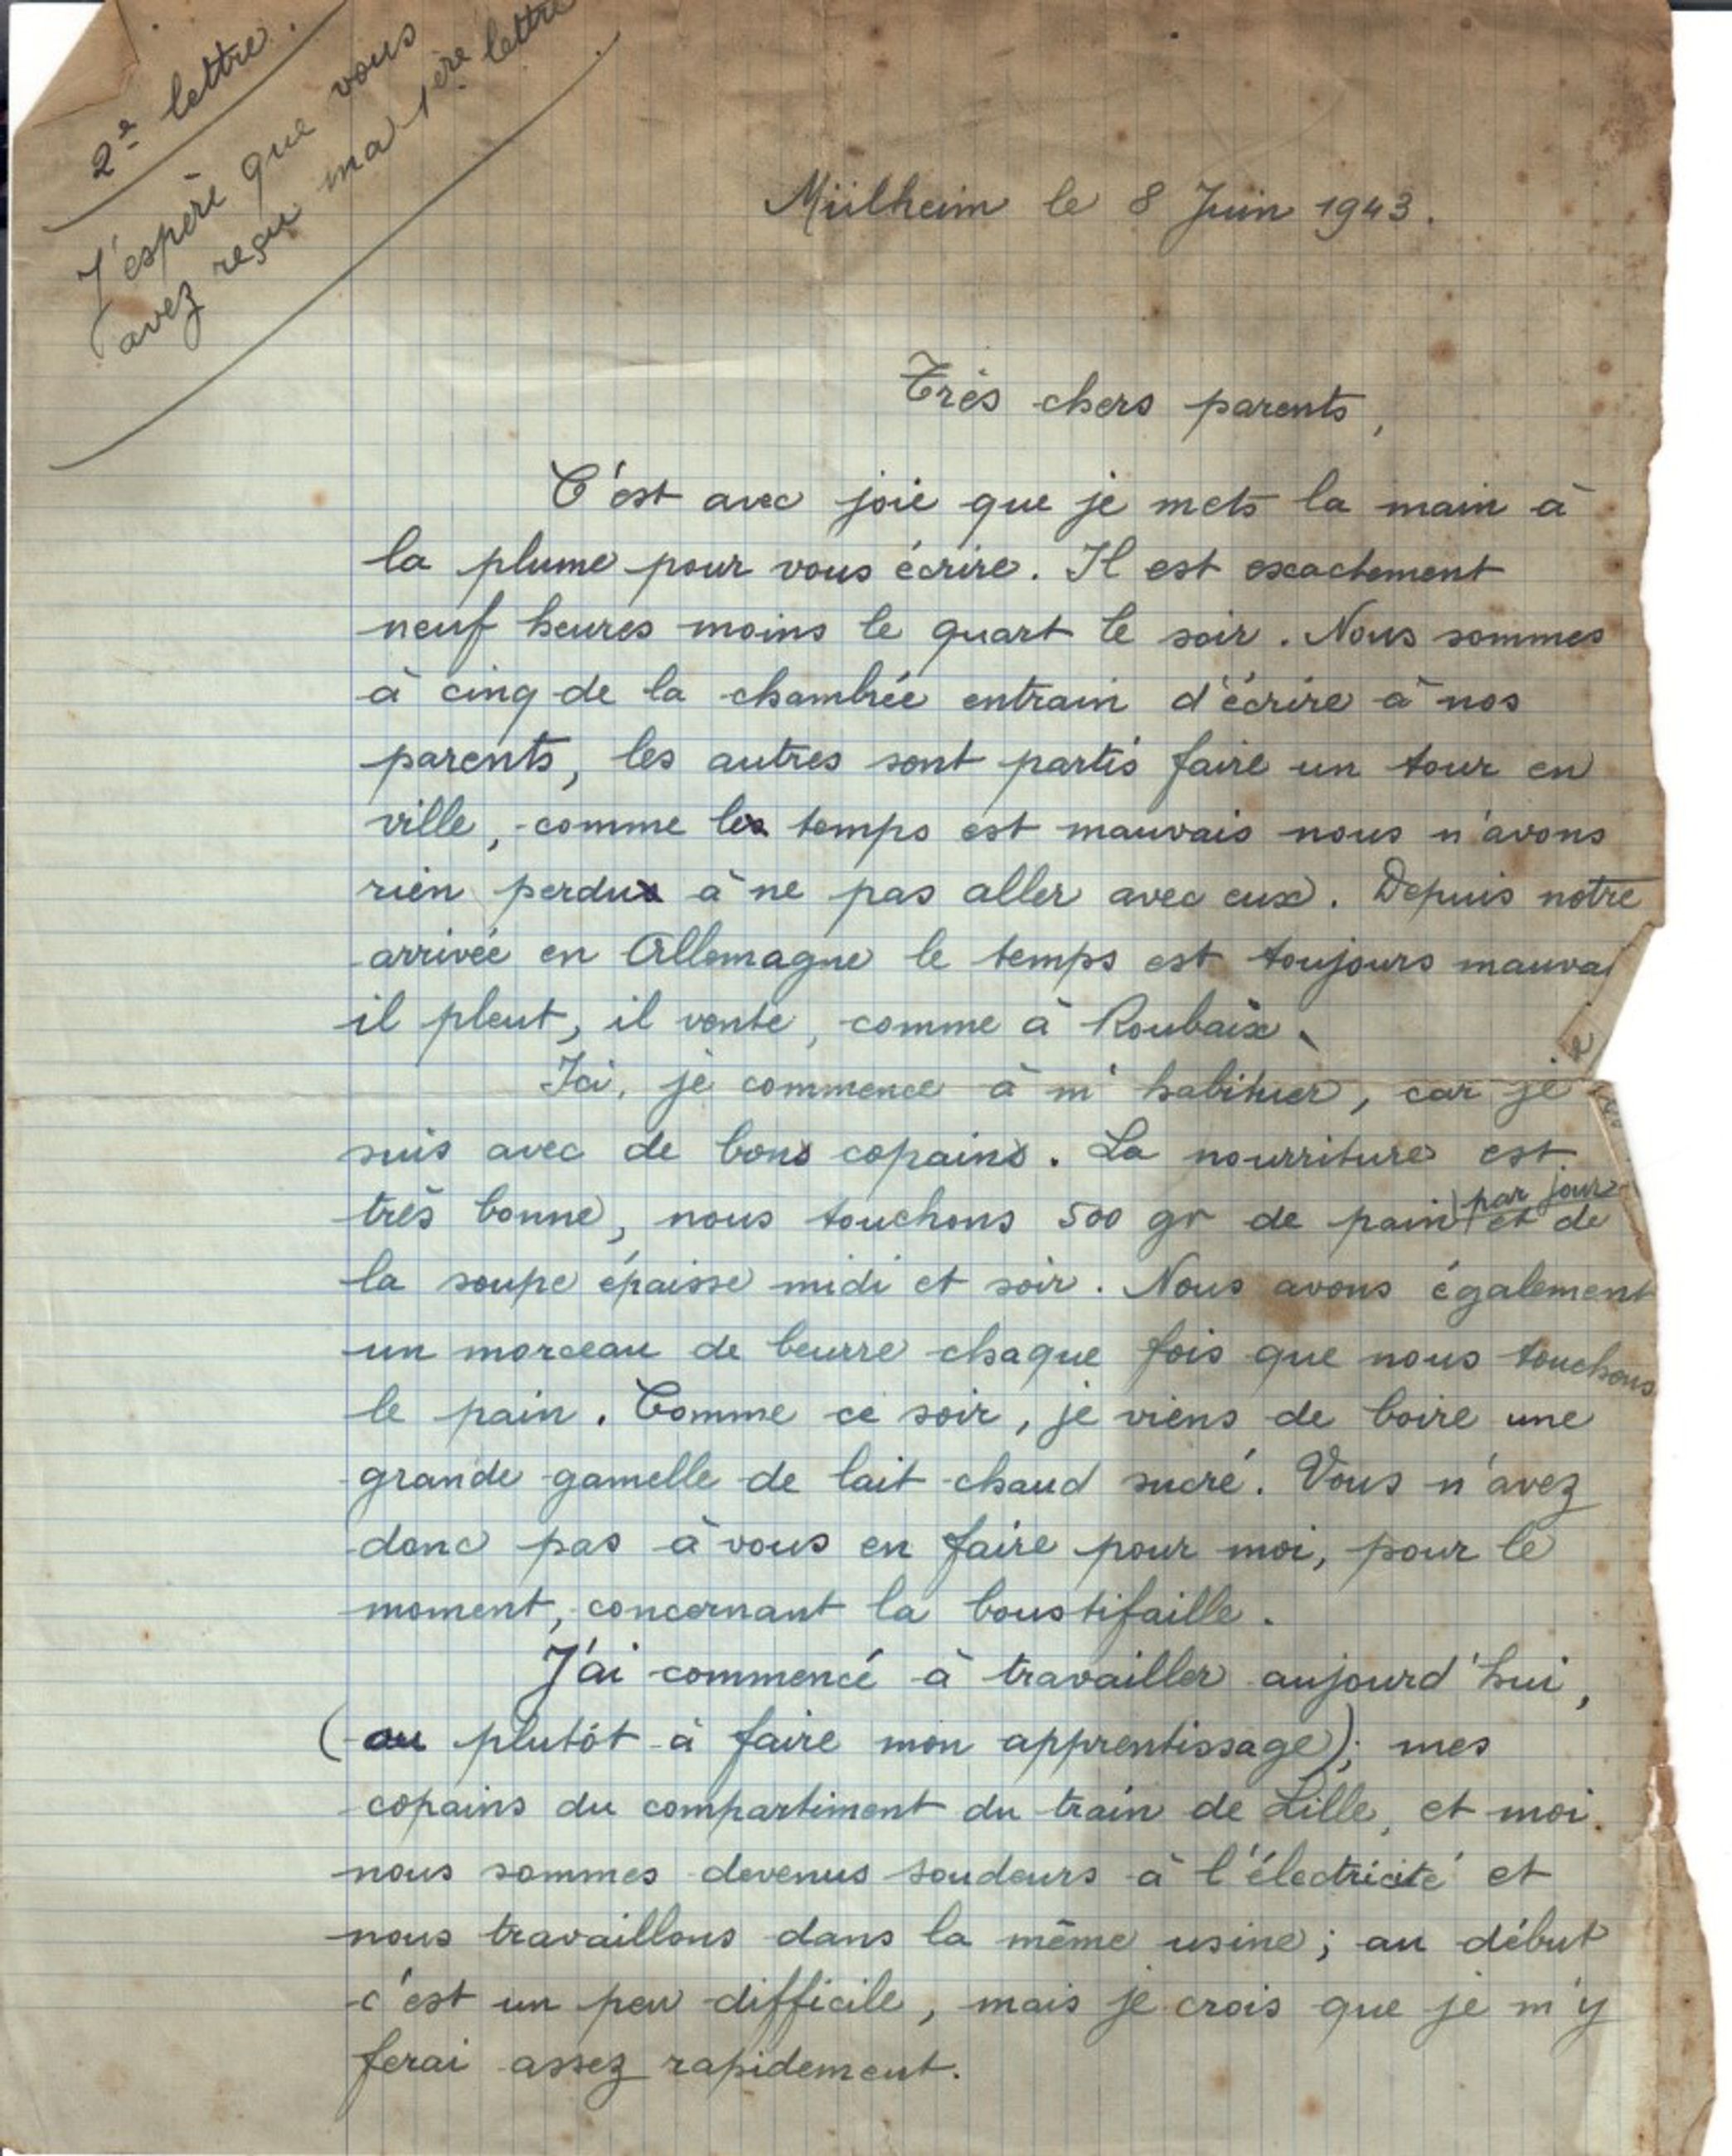 2e lettre.
J'espère que vous
avez reçu ma 1ère lettre.
Mülheim le 8 Juin 1943.
Très chers parents,
C'est avec joie que je mets la main à
la plume pour vous écrire. Il est exactement
neuf heures moins le quart le soir. Nous sommes
à cinq de la chambrée entrain d'écrire à nos
parents, les autres sont partis faire un tour en
ville, comme le temps est mauvais nous n'avons
rien perdu à ne pas aller avec eux. Depuis notre
arrivée en Allemagne le temps est toujours mauvai
il pleut, il vente, comme à Roubaix.
Ici, je commence à m'habituer, car je
suis avec de bons copains. La nourriture est
très bonne, nous touchons 500 gr de pain par jour et de
la soupe épaisse midi et soir. Nous avons également
un morceau de beurre chaque fois que nous touchons
le pain. Comme ce soir, je viens de boire une
grande gamelle de lait chaud sucré. Vous n'avez
donc pas à vous en faire pour moi, pour le
moment, concernant la boustifaille.
J'ai commencé à travailler aujourd'hui,
(ou plutôt à faire mon apprentissage); mes
copains du compartiment du train de Lille, et moi
nous sommes devenus soudeurs à l'électricité et
nous travaillons dans la même usine; au début
c'est un peu difficile, mais je crois que je m'y
ferai assez rapidement.